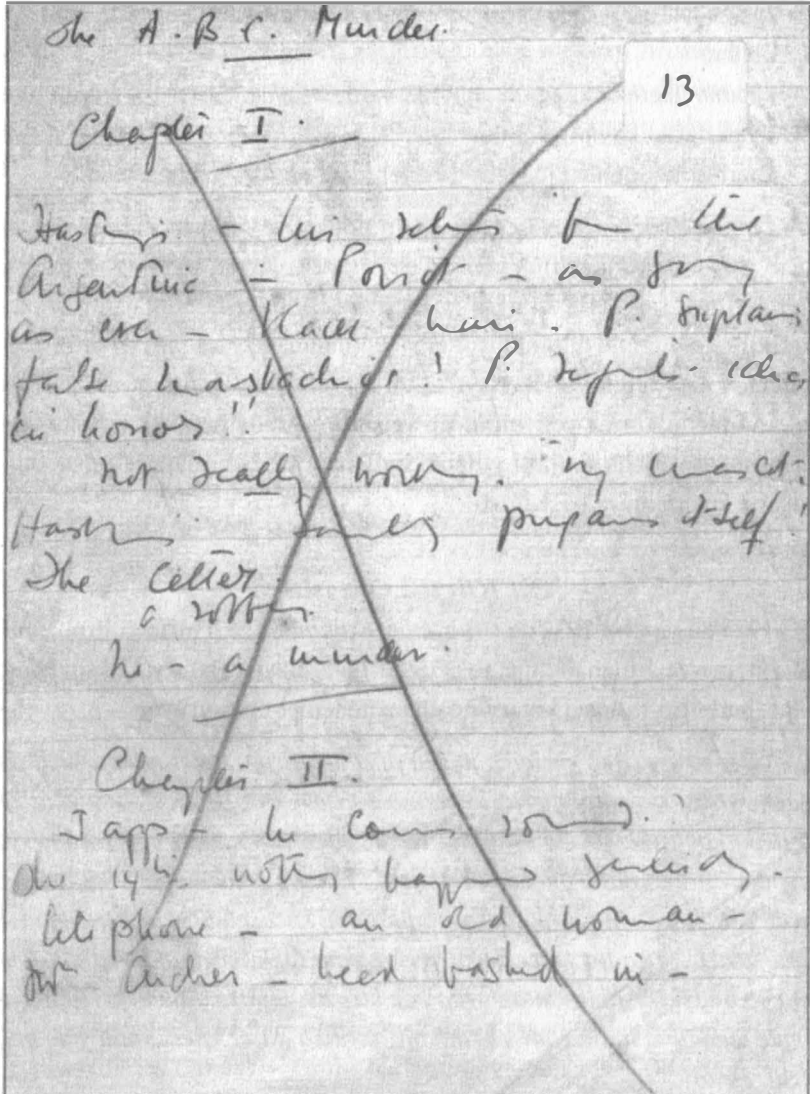 The A.B.C. Murder.
13
Chapter I.
Hastings – his return from the
Argentine – Poirot – as young
as ever – black hair. P. explains
false moustaches! P.
in horror!!
not really working.
Hastings prepares itself!
The letter
a robbery
No – a murder.
Chapter II.
Japp – he comes round.
The nothing happens yesterday.
telephone – an old woman –
Archer – head bashed in –